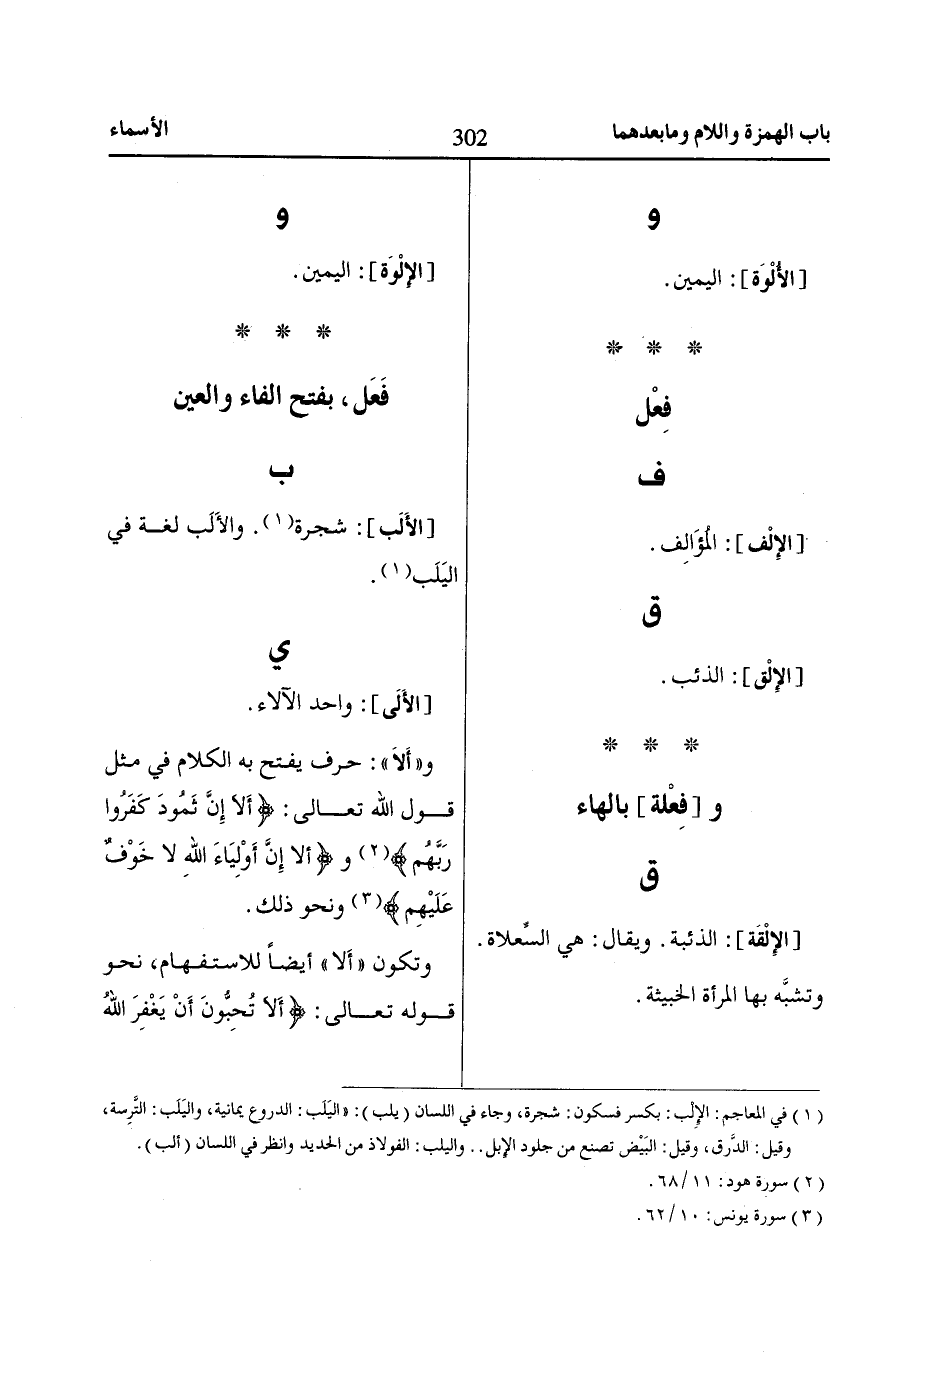 باب الهمزة واللام ومابعدهما
302
الأسماء
و
[الأُلْوَة]: اليمين.
* * *
فِعْل
ف
[الإِلْف]: المُؤَالِف.
ق
[الإِلْق]: الذئب.
* * *
و [فِعْلة] بالهاء
ق
[الإِلْقَة]: الذئبة. ويقال: هي السِّعلاة.
وتشبَّه بها المرأة الخبيثة.
و
[الإِلْوَة]: اليمين.
* * *
فَعَل، بفتح الفاء والعين
ب
[الأَلَب]: شجرة(١). والأَلَب لغة في
اليَلَب(١).
ي
[الأَلَى]: واحد الآلاء.
و«أَلاَ»: حرف يفتح به الكلام في مثل
قول الله تعالى: ﴿أَلا إِنَّ ثَمُودَ كَفَرُوا
رَبَّهُم﴾(٢) و ﴿ألا إِنَّ أَوْلِيَاءَ اللهِ لا خَوْفٌ
عَلَيْهِم﴾(٣) ونحو ذلك.
وتكون «أَلا» أيضاً للاستفهام، نحو
قوله تعالى: ﴿أَلاَ تُحِبُّونَ أَنْ يَغْفِرَ اللهُ
(١) في المعاجم: الإِلْب: بكسر فسكون: شجرة، وجاء في اللسان (يلب): «اليَلَب: الدروع يمانية، واليَلَب: التِّرسة،
وقيل: الدَّرق، وقيل: البَيْض تصنع من جلود الإبل.. واليلب: الفولاذ من الحديد وانظر في اللسان (ألب).
(٢) سورة هود: ٦٨/١١.
(٣) سورة يونس: ٦٢/١٠.